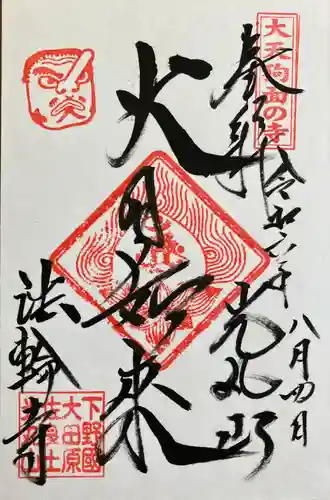 大天狗面の寺
奉拝
令和六年八月四日
光丸山
大日如来
法輪寺
下野國
大田原
佐良土
光丸山